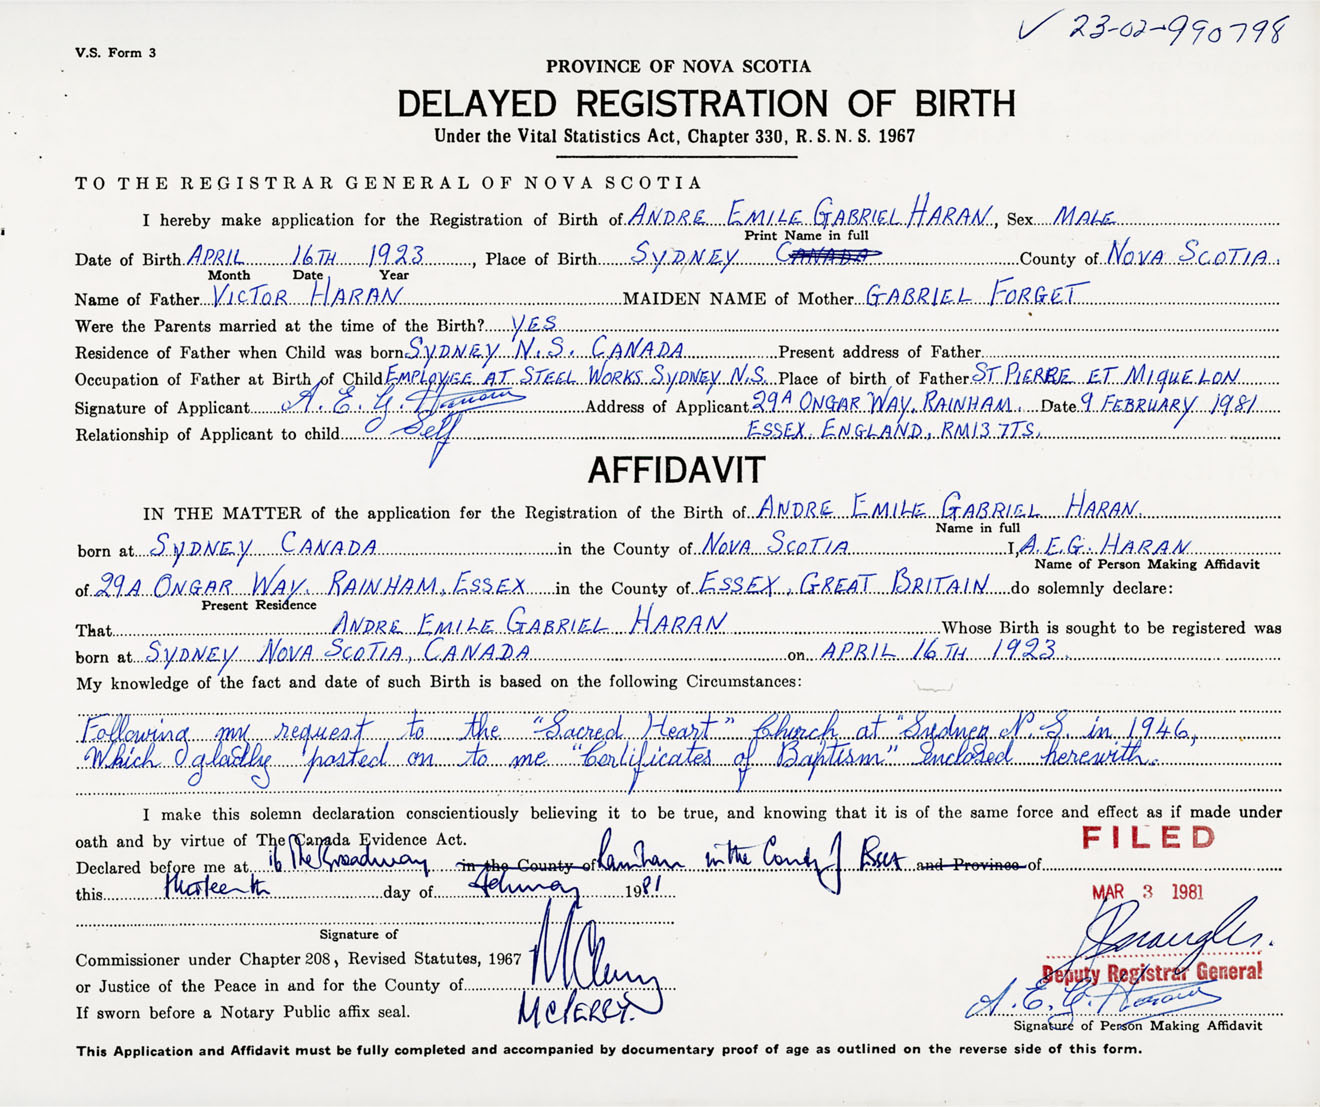 ✓ 23-02-990798
V.S. Form 3
PROVINCE OF NOVA SCOTIA
DELAYED REGISTRATION OF BIRTH
Under the Vital Statistics Act, Chapter 330, R. S. N. S. 1967
TO THE REGISTRAR GENERAL OF NOVA SCOTIA
I hereby make application for the Registration of Birth of ANDRE EMILE GABRIEL HARAN, Sex MALE
Print Name in full
Date of Birth APRIL 16TH 1923, Place of Birth SYDNEY CANADA County of NOVA SCOTIA.
Month Date Year
Name of Father VICTOR HARAN MAIDEN NAME of Mother GABRIEL FORGET
Were the Parents married at the time of the Birth? YES
Residence of Father when Child was born SYDNEY N.S. CANADA Present address of Father
Occupation of Father at Birth of Child EMPLOYEE AT STEEL WORKS SYDNEY N.S. Place of birth of Father ST PIERRE ET MIQUELON
Signature of Applicant A. E. G. Haran Address of Applicant 29A ONGAR WAY, RAINHAM. Date 9 FEBRUARY 1981
Relationship of Applicant to child Self ESSEX, ENGLAND, RM13 7TS.
AFFIDAVIT
IN THE MATTER of the application for the Registration of the Birth of ANDRE EMILE GABRIEL HARAN
Name in full
born at SYDNEY CANADA in the County of NOVA SCOTIA I, A.E.G. HARAN
Name of Person Making Affidavit
of 29A ONGAR WAY, RAINHAM, ESSEX in the County of ESSEX, GREAT BRITAIN do solemnly declare:
Present Residence
That ANDRE EMILE GABRIEL HARAN Whose Birth is sought to be registered was
born at SYDNEY NOVA SCOTIA, CANADA on APRIL 16TH 1923.
My knowledge of the fact and date of such Birth is based on the following Circumstances:
Following my request to the "Sacred Heart" Church at "Sydney N.S. in 1946,
Which I gladly posted on to me "Certificates of Baptism" enclosed herewith.
I make this solemn declaration conscientiously believing it to be true, and knowing that it is of the same force and effect as if made under
oath and by virtue of The Canada Evidence Act.
FILED
Declared before me at 16 The Broadway in the County of Rainham in the County of Essex and Province of
this thirteenth day of February 1981
MAR 3 1981
Signature of
Commissioner under Chapter 208, Revised Statutes, 1967
or Justice of the Peace in and for the County of
Deputy Registrar General
If sworn before a Notary Public affix seal. McPERRY.
A. E. G. Haran
Signature of Person Making Affidavit
This Application and Affidavit must be fully completed and accompanied by documentary proof of age as outlined on the reverse side of this form.